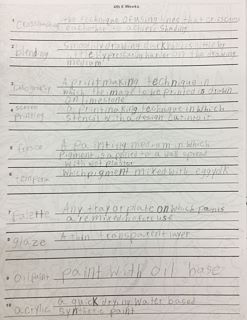 4th 6 Weeks
1 Crosshatching the technique of using lines that crisscross
each other to achieve shading
2 blending
medium
3 A printmaking technique in
which the image to be printed is drawn
on limestone
4 screen printing a printmaking technique in which
stencil with a design
5 fresco A painting medium in which
pigment is applied to a wall spread
with wet plaster
6 tempera Which pigment mixed with egg yolk
7 palette Any tray or plate on which paints
are mixed before use
8 glaze A thin transparent layer
9 oil paint paint with oil base
10 acrylic a quick drying water based
synthetic paint